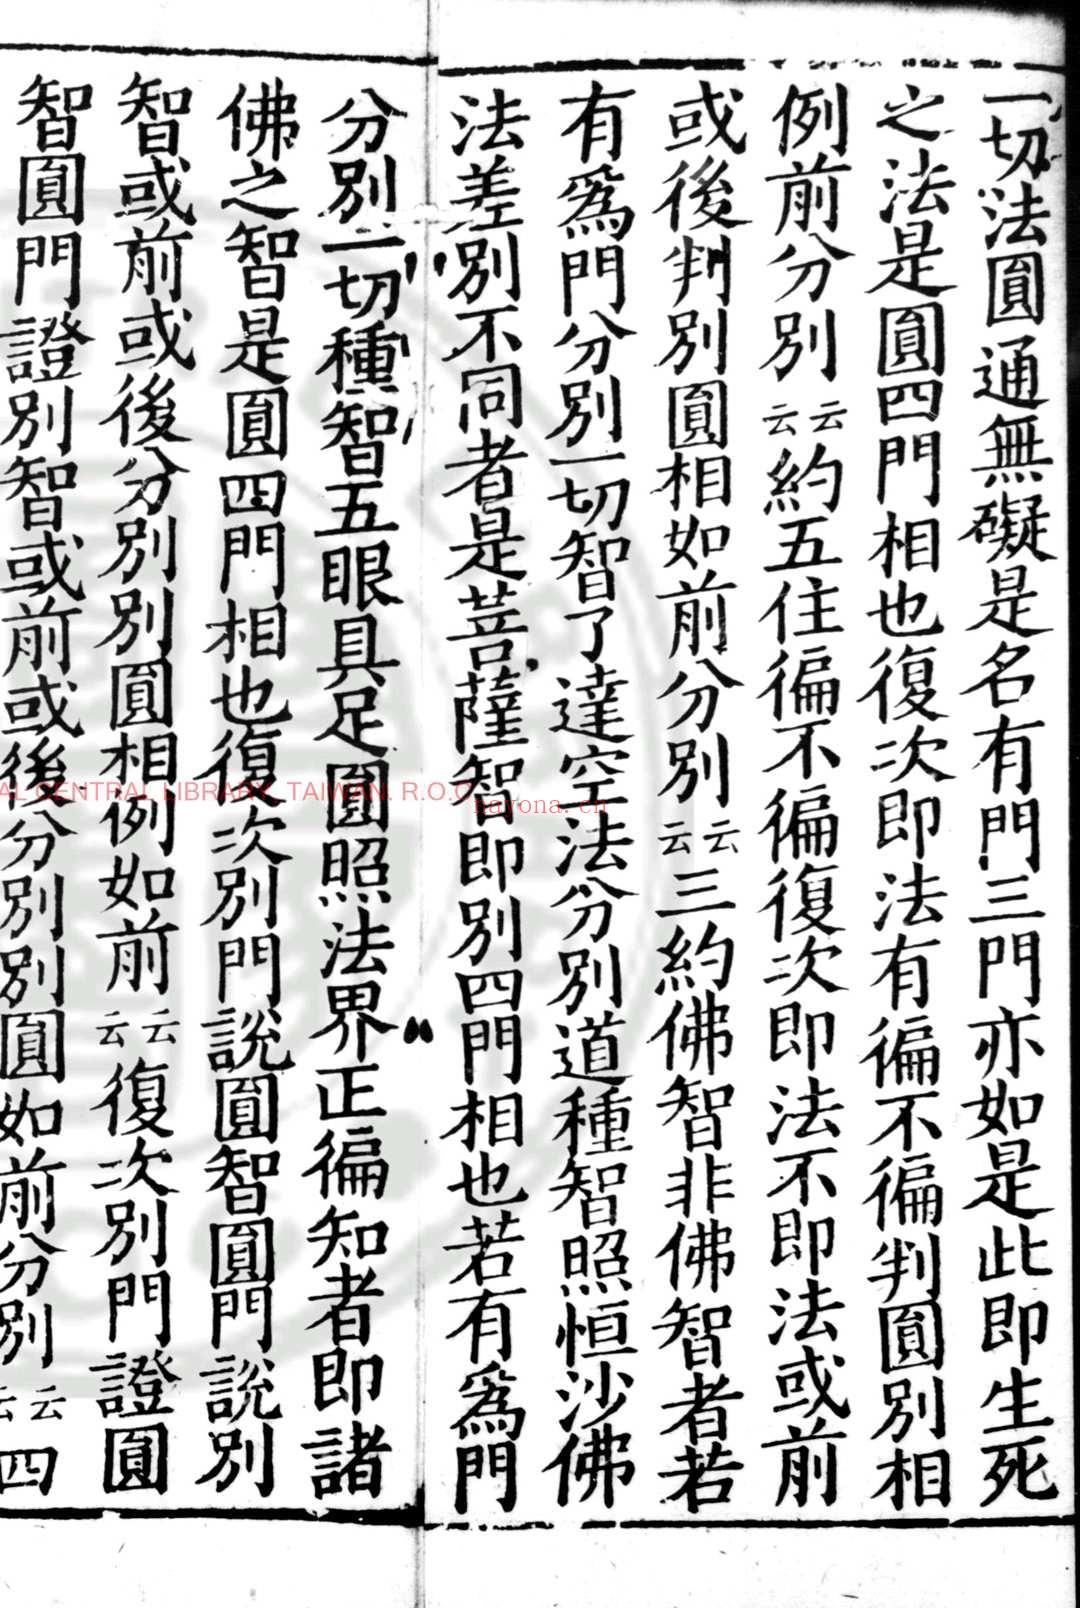 一切法圓通無礙是名有門三門亦如是此即生死
之法是圓四門相也復次即法有徧不徧判圓別相
例前分別云云約五住徧不徧復次即法不即法或前
或後判別圓相如前分別云云三約佛智非佛智者若
有爲門分別一切智了達空法分別道種智照恒沙佛
法差別不同者是菩薩智即別四門相也若有爲門
分別一切種智五眼具足圓照法界正徧知者即諸
佛之智是圓四門相也復次別門說圓智圓門說別
智或前或後分別別圓相例如前云云復次別門證圓
智圓門證別智或前或後分別別圓如前分別云云四
NAL CENTRAL LIBRARY, TAIWAN. R.O.C
nayona.cn